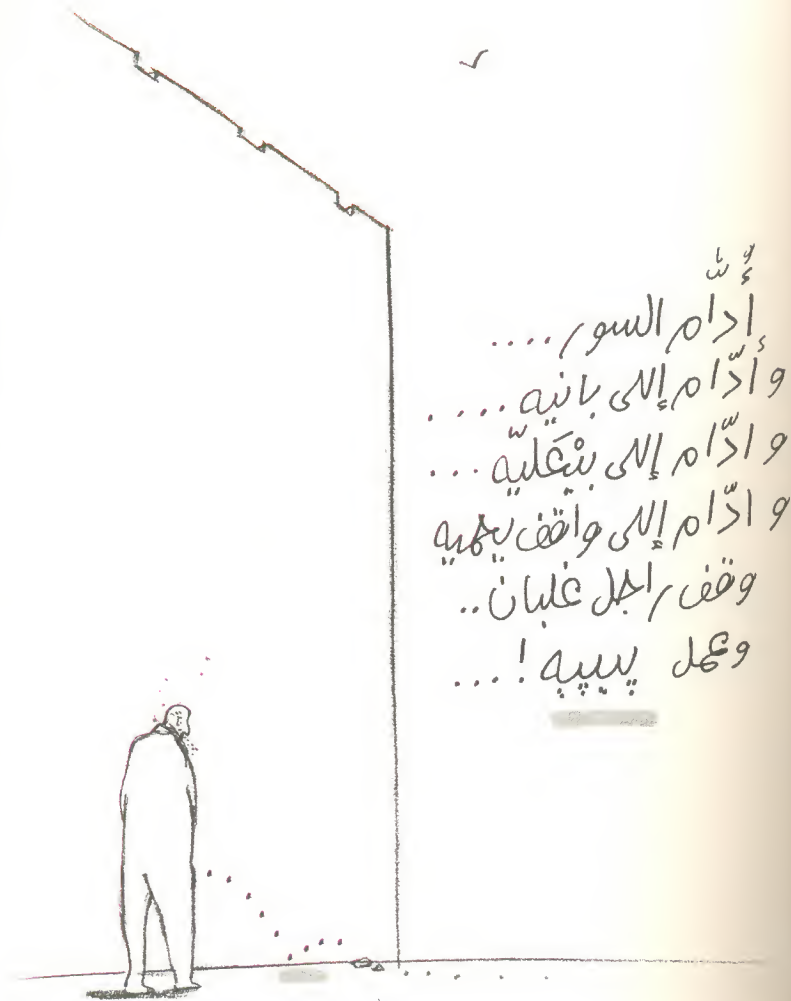 أُدَّام السور ....
وأُدّام إللى بانيه ....
وادّام إللى بيْعَليّه ...
وادّام إللى واقف يحميه
وقف راجل غلبان ..
وعمل پيپيه ! ...